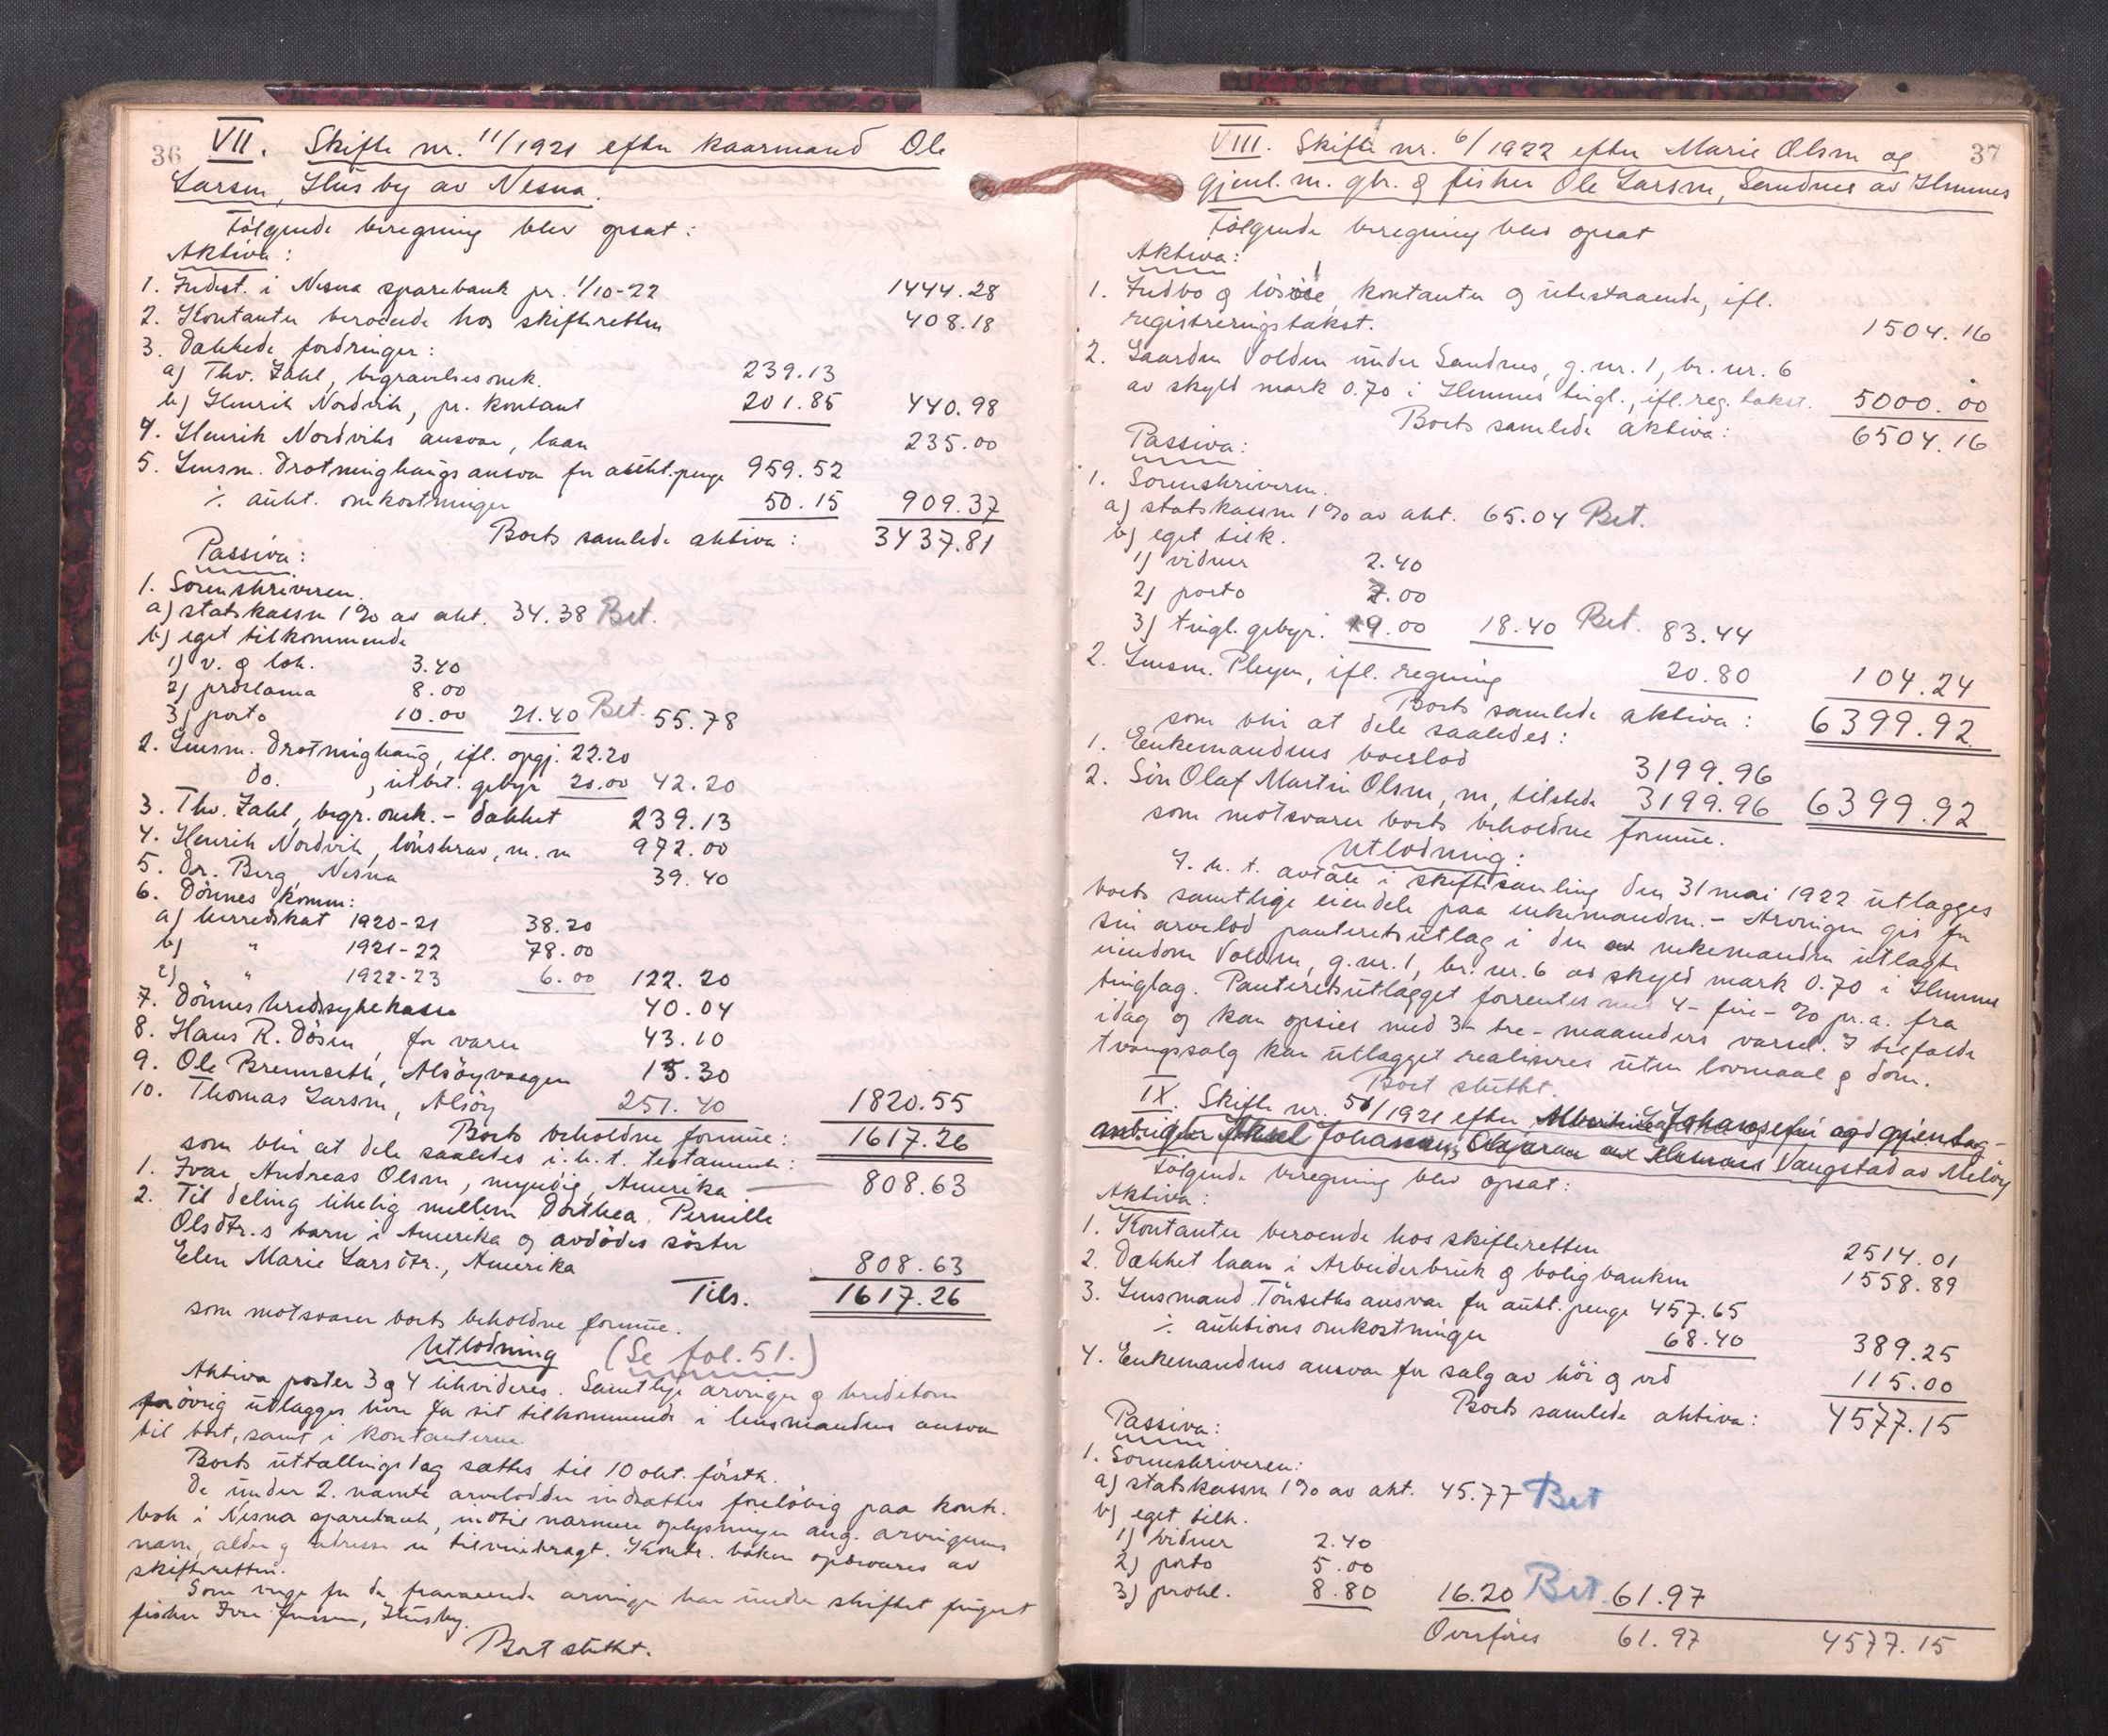 36
VII. Skifte nr. 11/1921 efter kaarmand Ole
Larsen, Husby av Nesna.
Følgende beregning blev opsat:
Aktiva:
1. Indest. i Nesna sparebank pr. 1/10-22 1444.28
2. Kontanter beroende hos skifteretten 408.18
3. Dækkede fordringer:
a) Thv. Zahl, begravelsesomk. 239.13
b) Henrik Nordvik, pr. kontant 201.85 440.98
4. Henrik Nordviks ansvar, laan 235.00
5. Lensm. Drotninghaugs ansvar for aukt.penge 959.52
÷ aukt. omkostninger 50.15 909.37
Boets samlede aktiva: 3437.81
Passiva:
1. Sorenskriveren.
a) statskassen 1% av akt. 34.38 Bet.
b) eget tilkommende
1) v. & lok. 3.40
2) proclama 8.00
3) porto 10.00 21.40 Bet. 55.78
2. Lensm. Drotninghaug, ifl. opgj. 22.20
do. , utbet. gebyr 20.00 42.20
3. Thv. Zahl, begr. omk. - dækket 239.13
4. Henrik Nordvik, lönskrav, m.m 972.00
5. Dr. Berg, Nesna 39.40
6. Dönnes komm:
a) herredskat 1920-21 38.20
b) " 1921-22 78.00
c) " 1922-23 6.00 122.20
7. Dönnes kredssykekasse 40.04
8. Hans R. Dösen, for varer 43.10
9. Ole Brennseth, Alsöyvaagen 15.30
10. Thomas Larsen, Alsöy 251.40 1820.55
Boets beholdne formue: 1617.26
som blir at dele saaledes i.h.t. testamente:
1. Ivar Andreas Olsen, myndig, Amerika 808.63
2. Til deling likelig mellem Dorthea Pernille
Olsdtr.s barn i Amerika og avdödes söster
Elen Marie Larsdtr., Amerika 808.63
Tils. 1617.26
som motsvarer boets beholdne formue.
Utlodning (Se fol. 51.)
Aktiva poster 3 & 4 likvideres. Samtlige arvinger & kreditorer
forövrig utlægges hver for sit tilkommende i lensmandens ansvar
til boet, samt i kontanterne.
Boets uttællingsdag sættes til 10 okt. förstk.
De under 2. nævnte arvelodder indsættes foreløbig paa kontr.
bok i Nesna sparebank, indtil nærmere oplysninger ang. arvingernes
navn, alder & adresse er tilveiebragt. Kontr. boken opbevares av
skifteretten.
Som verge for de fraværende arvinger har under skiftet fungert
fisker Iver Jensen, Husby.
Boet sluttet.
37
VIII. Skifte nr. 6/1922 efter Marie Olsen og
gjenl. m. gbr. & fisker Ole Larsen, Sandnes av Hemnes
Følgende beregning blev opsat
Aktiva:
1. Indbo & lösöre, kontanter & utestaaende, ifl.
registreringstakst. 1504.16
2. Gaarden Volden under Sandnes, g.nr. 1, br. nr. 6
av skyld mark 0.70 i Hemnes tingl., ifl. reg. takst. 5000.00
Boets samlede aktiva: 6504.16
Passiva:
1. Sorenskriveren.
a) statskassen 1% av akt. 65.04 Bet.
b) eget tilk.
1) vidner 2.40
2) porto 7.00
3) tingl. gebyr. 9.00 18.40 Bet. 83.44
2. Lensm. Pleym, ifl. regning 20.80 104.24
Boets samlede aktiva: 6399.92
som blir at dele saaledes:
1. Enkemandens boeslod 3199.96
2. Sön Olaf Martin Olsen, m, tilstede 3199.96 6399.92
som motsvarer boets beholdne formue.
Utlodning:
I. h. t. avtale i skiftesamling den 31 mai 1922 utlægges
boets samtlige eiendele paa enkemanden. - Arvingen gis for
sin arvelod panteretsutlæg i den enkemanden utlagte
eiendom Volden, g.nr. 1, br. nr. 6 av skyld mark 0.70 i Hemnes
tinglag. Panteretsutlægget forrentes med 4 - fire - % pr. a. fra
idag og kan opsies med 3 - tre - maaneders varsel. I tilfælde
tvangssalg kan utlægget realiseres uten lovmaal & dom.
Boet sluttet.
IX. Skifte nr. 51/1921 efter Johansen og gjenlev-
Johansen Vangstad av Melöy
Følgende beregning blev opsat:
Aktiva:
1. Kontanter beroende hos skifteretten 2514.01
2. Dækket laan i Arbeiderbruk & boligbanken 1558.89
3. Lensmand Tönseths ansvar for aukt. penge 457.65
÷ auktions omkostninger 68.40 389.25
4. Enkemandens ansvar for salg av höi & ved 115.00
Boets samlede aktiva: 4577.15
Passiva:
1. Sorenskriveren:
a) statskassen 1% av akt. 45.77 Bet
b) eget tilk.
1) vidner 2.40
2) porto 5.00
3) prokl. 8.80 16.20 Bet. 61.97
Overføres 61.97 4577.15